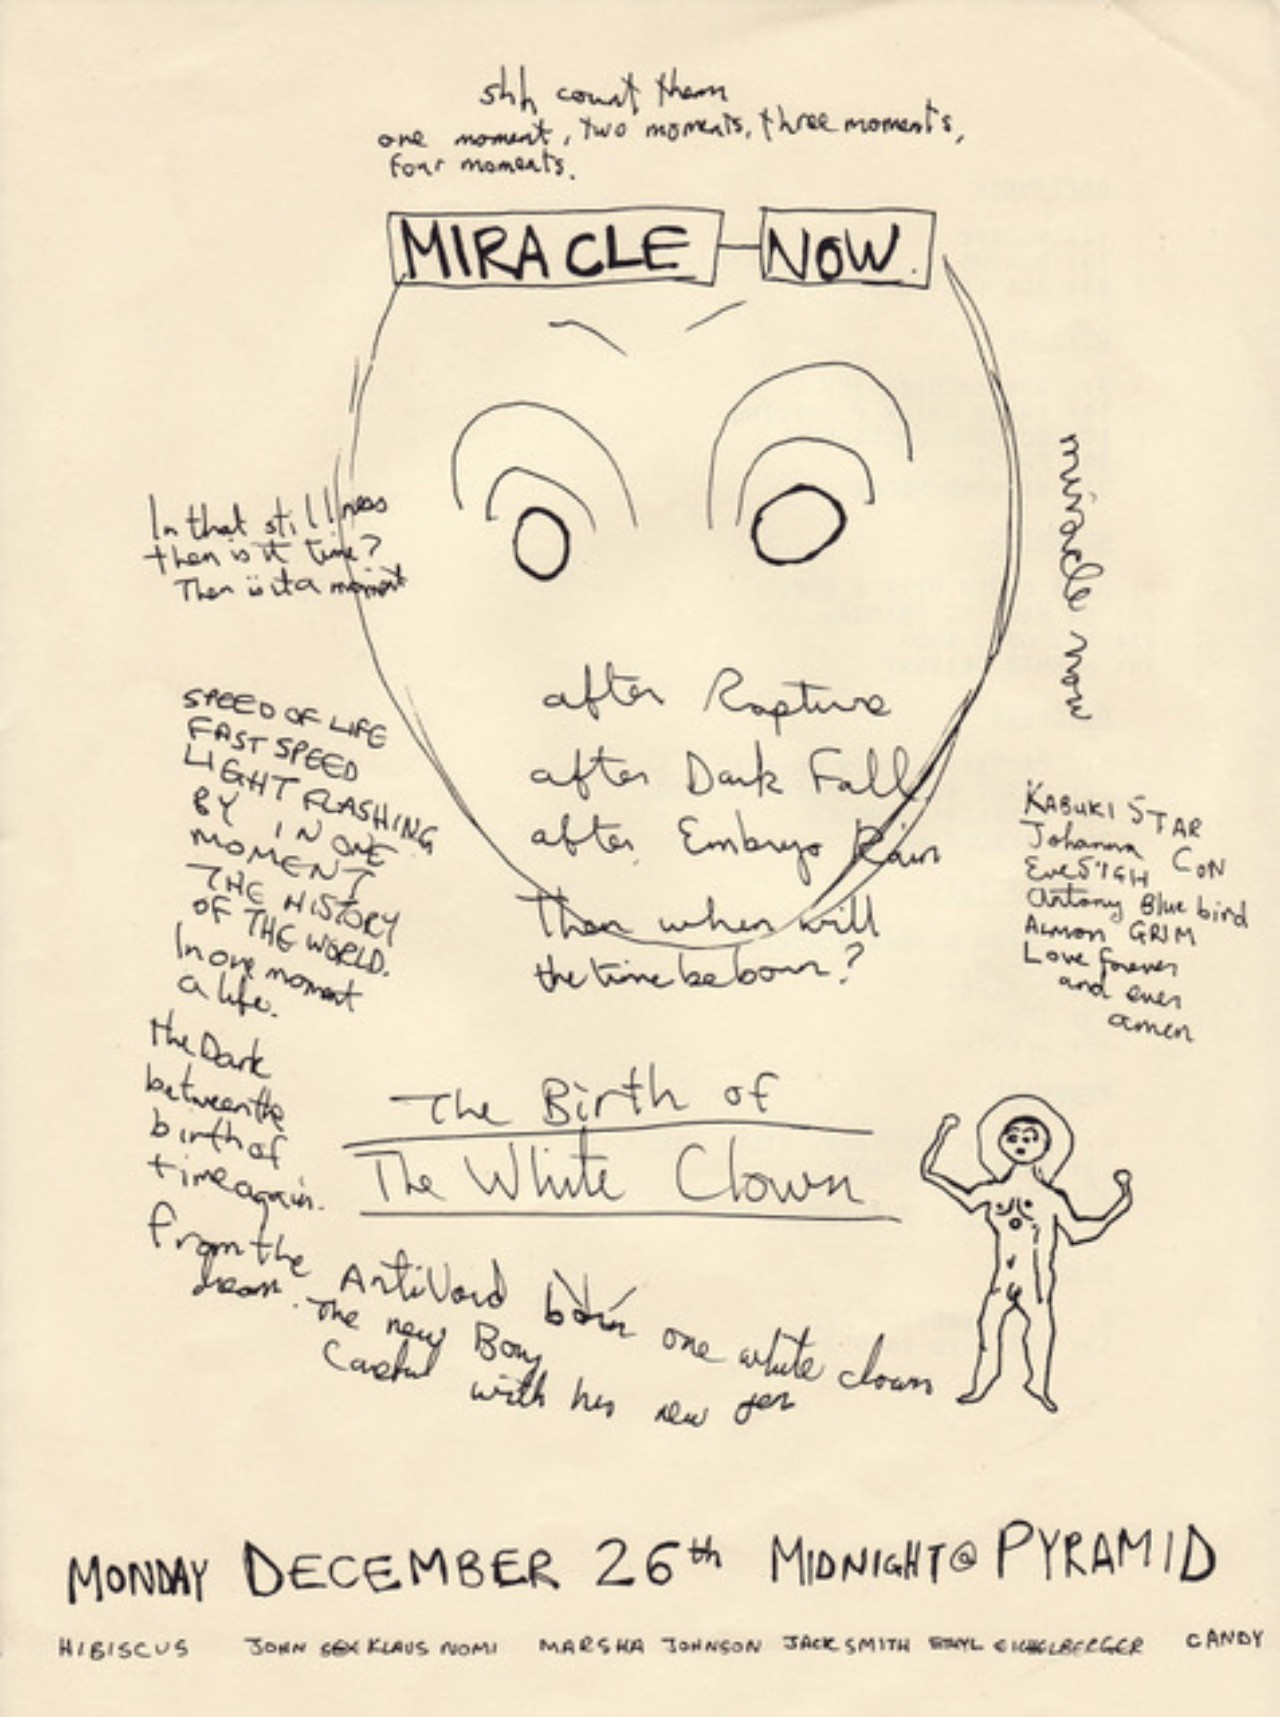 shh count them
one moment, two moments, three moments,
four moments.
MIRACLE NOW.
In that stillness
then is it time?
Then is it a moment
miracle now
after Rapture
after Dark Fall
after Embryo Rain
Then when will
the time be born?
SPEED OF LIFE
FAST SPEED
LIGHT FLASHING
BY IN ONE
MOMENT
THE HISTORY
OF THE WORLD.
In one moment
a life.
KABUKI STAR
Johanna CON
Eve SIGH
Antony Blue bird
ALMON GRIM
Love forever
and ever
amen
the Dark
between the
birth of
time again.
From the
The Birth of
The White Clown
AntiVoid born one white clown
The new Boy
Careful with his new
MONDAY DECEMBER 26th MIDNIGHT@ PYRAMID
HIBISCUS JOHN SEX KLAUS NOMI MARSHA JOHNSON JACK SMITH ETHYL EICHELBERGER CANDY